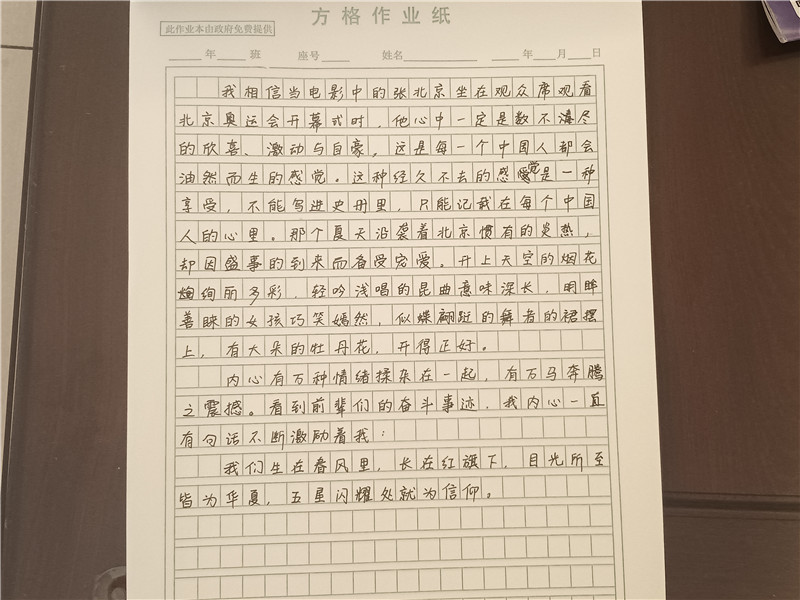 方格作业纸
此作业本由政府免费提供
年 班 座号 姓名 年 月 日
我相信当电影中的张北京坐在观众席观看
北京奥运会开幕式时，他心中一定是数不清尽
的欣喜、激动与自豪，这是每一个中国人都会
油然而生的感觉。这种经久不去的感觉是一种
享受，不能写进史册里，只能记载在每个中国
人的心里。那个夏天沿袭着北京惯有的炎热，
却因盛事的到来而备受宠爱。升上天空的烟花
绚丽多彩，轻吟浅唱的昆曲意味深长，明眸
善睐的女孩巧笑嫣然，似蝶翩跹的舞者的裙摆
上，有大朵的牡丹花，开得正好。
内心有万种情绪揉杂在一起，有万马奔腾
之震撼。看到前辈们的奋斗事迹，我内心一直
有句话不断激励着我：
我们生在春风里，长在红旗下，目光所至
皆为华夏，五星闪耀处就为信仰。